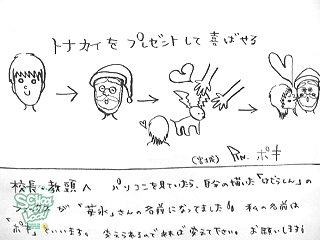 トナカイを プレゼントして 喜ばせる
(宮城) RN. ポキ
校長、教頭へ パソコンを見ていたら、自分の描いた「けどらしん」の
が 「葉氷」さんの名前になってました。私の名前は
「ポキ」といいます。変えられるのであれば変えて下さい。お願いします!